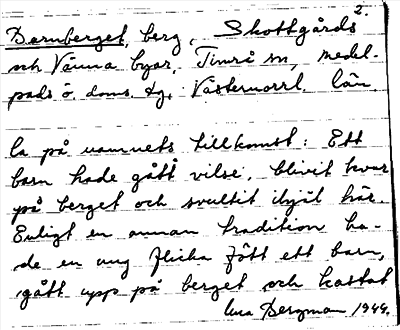 2.
Barnberget, berg, Skottgårds
och Vänna byar, Timrå sn, Medel-
pads ö. doms. tg, Västernorrl. län.
la på namnets tillkomst: Ett
barn hade gått vilse, blivit kvar
på berget och svultit ihjäl här.
Enligt en annan tradition ha-
de en ung flicka fött ett barn,
gått upp på berget och kastat
Bergman 1944.